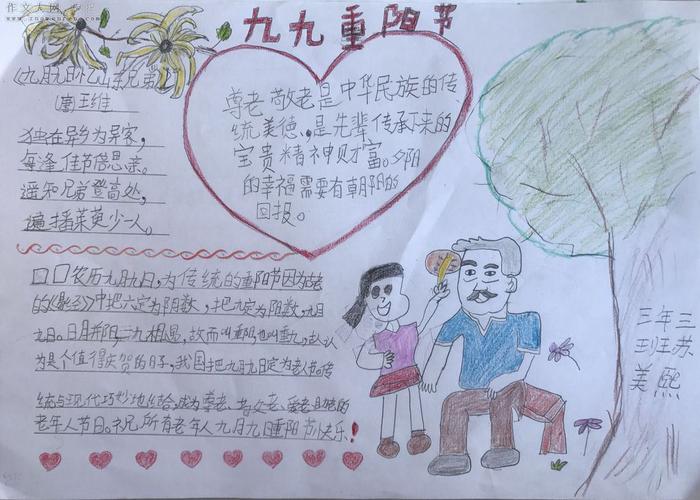 作文人网
www.zuowenren.com
九九重阳节
《九月九日忆山东兄弟》
唐王维
独在异乡为异客,
每逢佳节倍思亲。
遥知兄弟登高处,
遍插茱萸少一人。
尊老敬老是中华民族的传
统美德,是先辈传承下来的
宝贵精神财富。夕阳
的幸福需要有朝阳的
回报。
农历九月九日,为传统的重阳节因为古老
的《易经》中把六定为阴数,把九定为阳数,九月
九日。日月并阳,二九相遇,故而叫重阳也叫重九,古人认
为是个值得庆贺的日子,我国把九月九日定为老人节。传
统与现代巧妙地结合,成为尊老、敬老、爱老、助老的
老年人节日。祝所有老年人九月九日重阳节快乐!
三年三
班王苏
美熙